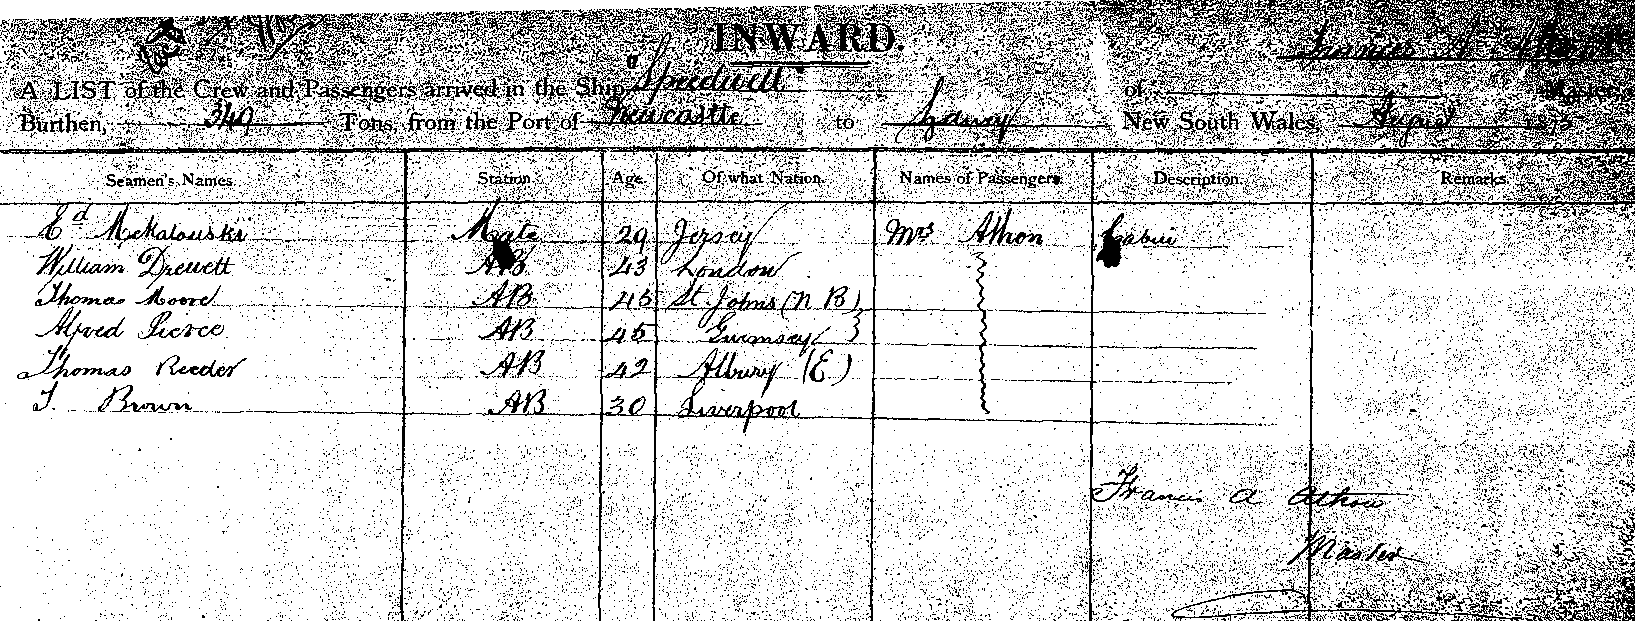 INWARD.
Francis A
A LIST of the Crew and Passengers arrived in the Ship "Speedwell" of Master,
Burthen, 349 Tons, from the Port of Newcastle to Sydney New South Wales, August 187
Seamen's Names. Station. Age. Of what Nation. Names of Passengers. Description. Remarks.
Ed Mate 29 Jersey Mrs Athon Cabin
William Drewett AB 43 London
Thomas Moore AB 45 St Johns (N B)
Alfred Pierce AB 45 Guernsey
Thomas Reeder AB 42 Albury (E)
T. Brown AB 30 Liverpool
Francis A Athon
Master